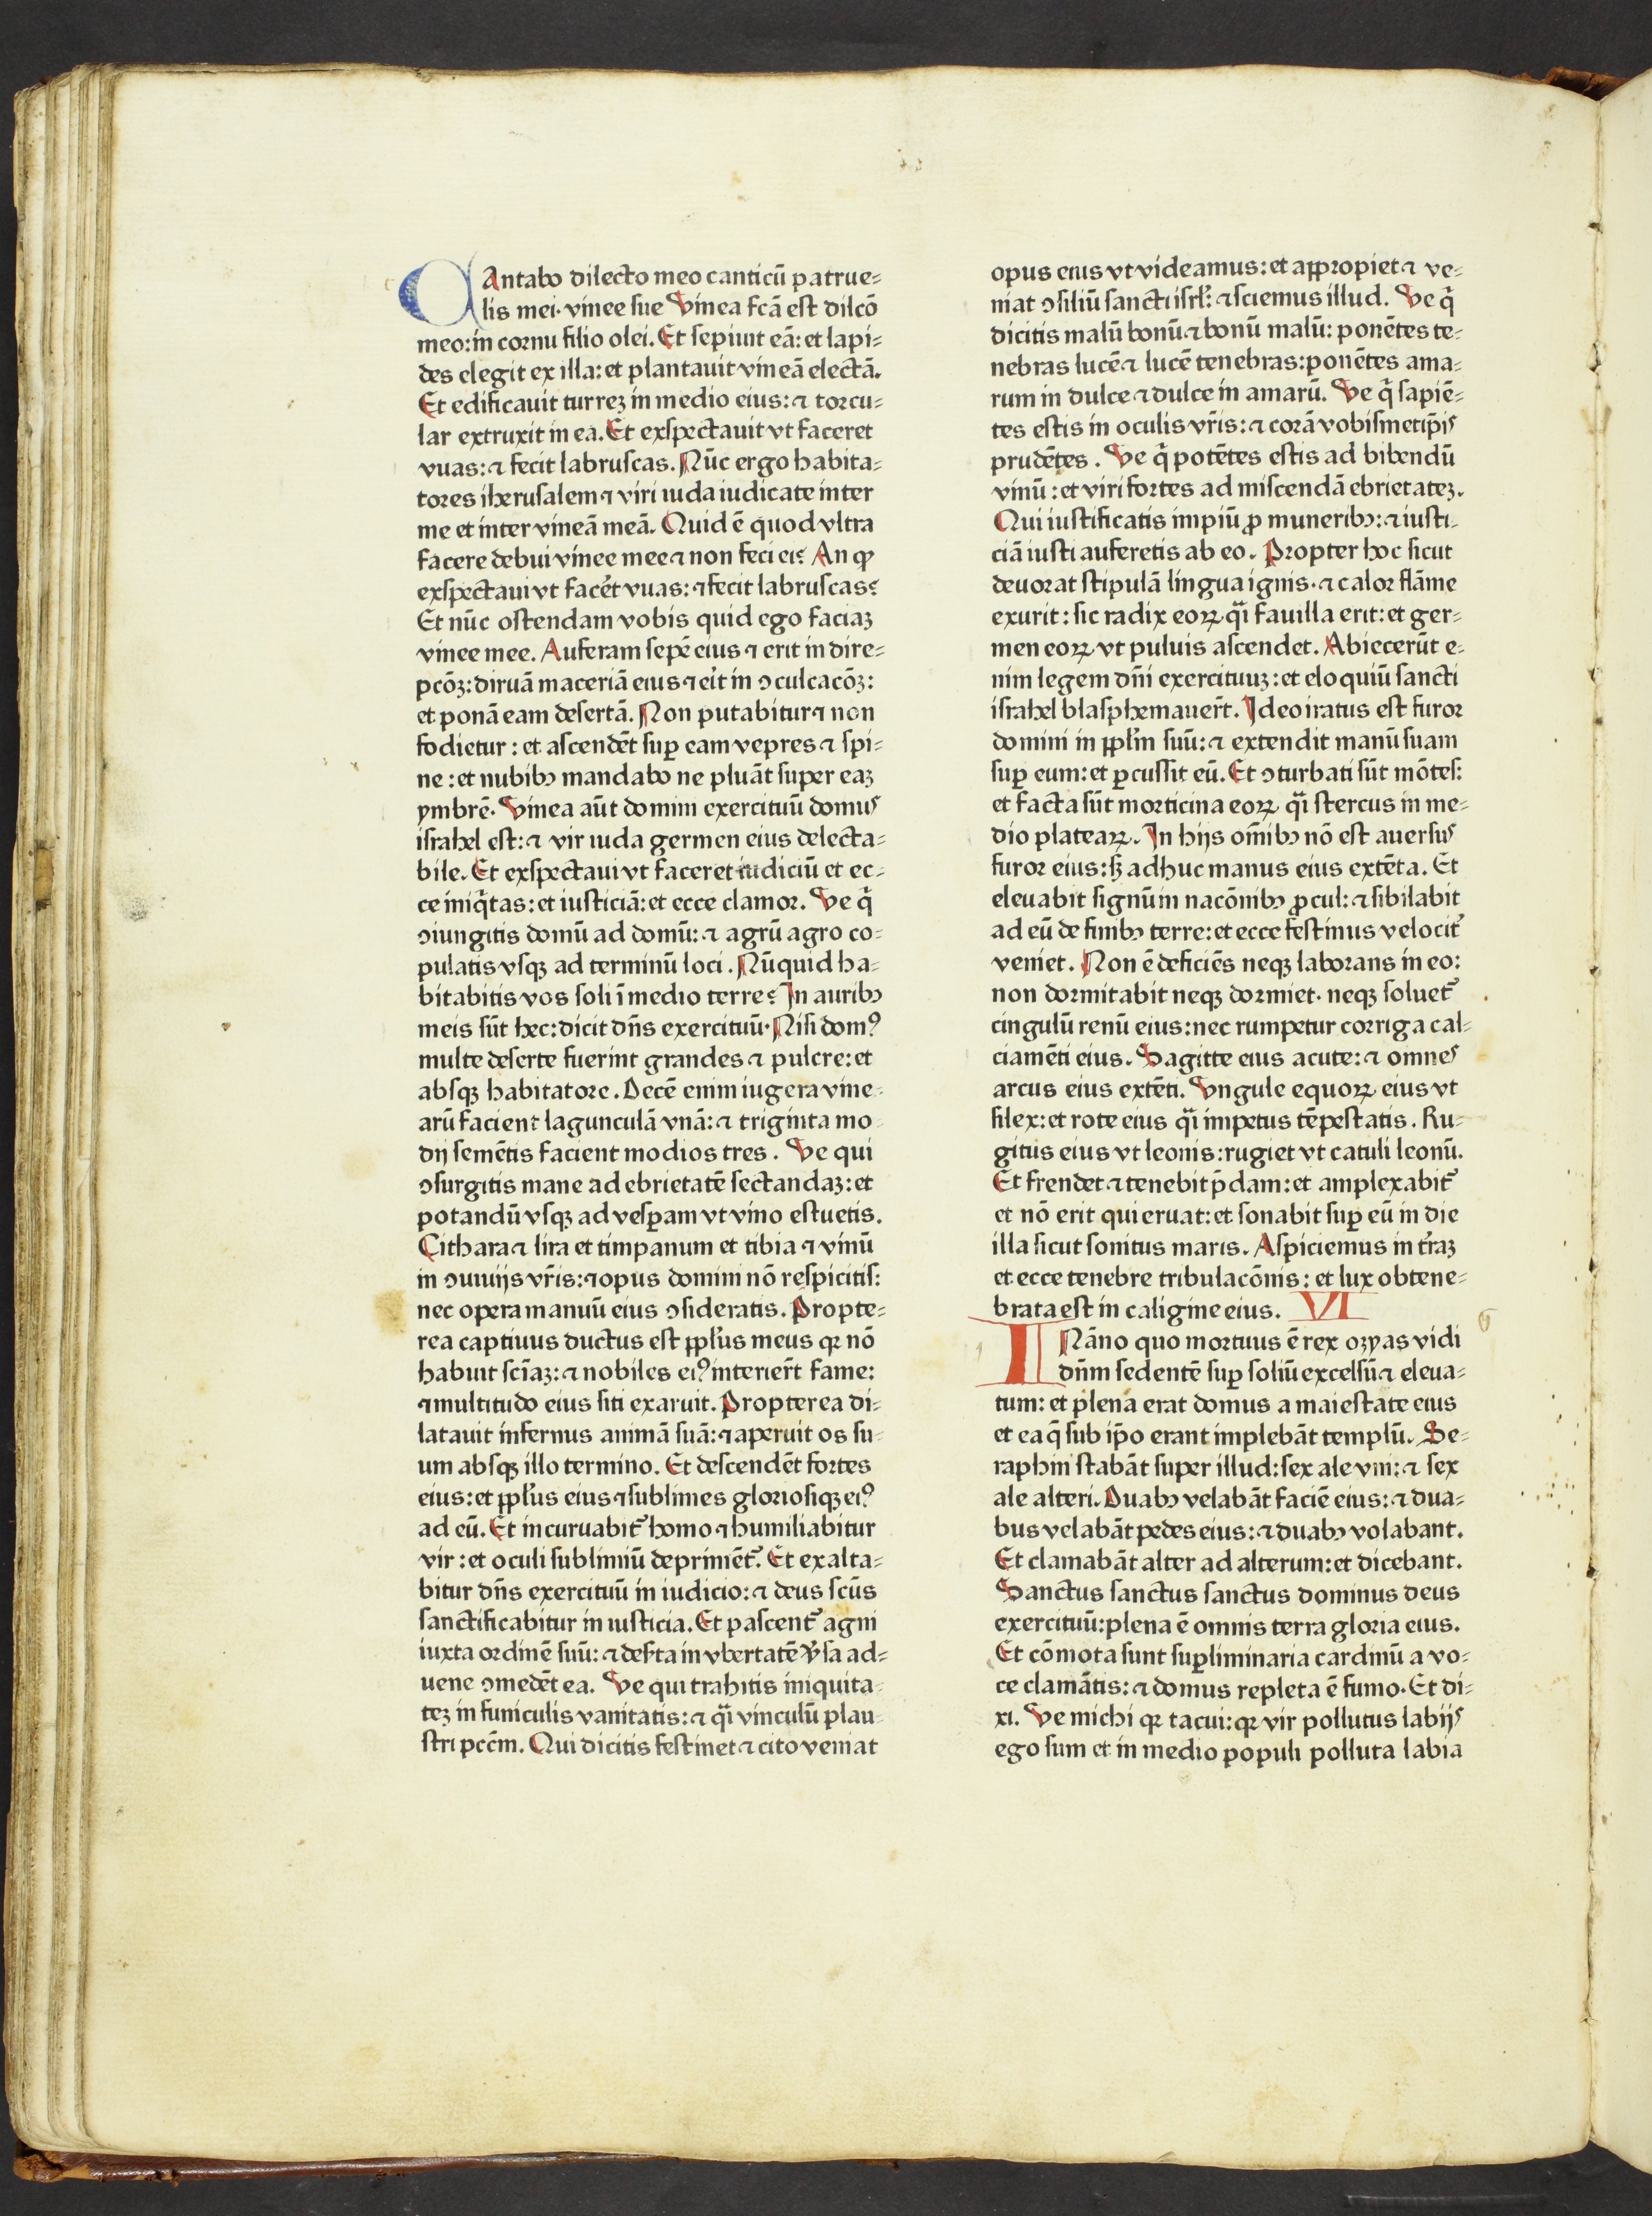 CAntabo dilecto meo canticū patrue⸗
lis mei· vinee sue Vinea fcā est dilcō
meo: in cornu filio olei. Et sepiuit eā: et lapi⸗
des elegit ex illa: et plantauit vineā electā.
Et edificauit turreꝫ in medio eius: ⁊ torcu⸗
lar extruxit in ea. Et exspectauit vt faceret
vuas: ⁊ fecit labruscas. Nūc ergo habita⸗
tores iherusalem ⁊ viri iuda iudicate inter
me et inter vineā meā. Quid ē quod vltra
facere debui vinee mee ⁊ non feci ei? An ꝙ
exspectaui vt facēt vuas: ⁊ fecit labruscas?
Et nūc ostendam vobis quid ego faciaꝫ
vinee mee. Auferam sepē eius ⁊ erit in dire⸗
pcōꝫ: diruā maceriā eius ⁊ eit̄ in ↄculcacōꝫ:
et ponā eam desertā. Non putabitur ⁊ non
fodietur: et ascendēt sup̱ eam vepres ⁊ spi⸗
ne: et nubibꝫ mandabo ne pluāt super eaꝫ
ymbrē. Vinea aūt domini exercituū domus
israhel est: ⁊ vir iuda germen eius delecta⸗
bile. Et exspectaui vt faceret iudiciū et ec⸗
ce iniq̄tas: et iusticiā: et ecce clamor. Ve q̄
ↄiungitis domū ad domū: ⁊ agrū agro co⸗
pulatis vsqꝫ ad terminū loci. Nūquid ha⸗
bitabitis vos soli ī medio terre? In auribꝫ
meis sūt hec: dicit dn̄s exercituū· Nisi domꝰ
multe deserte fuerint grandes ⁊ pulcre: et
absqꝫ habitatore. Decē enim iugera vine⸗
arū facient lagunculā vnā: ⁊ triginta mo⸗
dij semētis facient modios tres. Ve qui
ↄsurgitis mane ad ebrietatē sectandaꝫ: et
potandū vsqꝫ ad vesp̱am vt vino estuetis.
Cithara ⁊ lira et timpanum et tibia ⁊ vinū
in ↄuiuijs vr̄is: ⁊ opus domini nō respicitis:
nec opera manuū eius ↄsideratis. Propte⸗
rea captiuus ductus est ppl̄us meus qꝛ nō
habuit sciāꝫ: ⁊ nobiles eiꝰ interier̄t fame:
⁊ multitudo eius siti exaruit. Propterea di⸗
latauit infernus animā suā: ⁊ aperuit os su⸗
um absqꝫ illo termino. Et descendēt fortes
eius: et ppl̄us eius ⁊ sublimes gloriosiqꝫ eiꝰ
ad eū. Et incuruabit̄ homo ⁊ humiliabitur
vir: et oculi sublimiū deprimēt̄. Et exalta⸗
bitur dn̄s exercituū in iudicio: ⁊ deus scūs
sanctificabitur in iusticia. Et pascent̄ agni
iuxta ordinē suū: ⁊ des̄ta in vbertatē v̄sa ad⸗
uene ↄmedēt ea. Ve qui trahitis iniquita⸗
teꝫ in funiculis vanitatis: ⁊ qͣi vinculū plau⸗
stri pcc̄m. Qui dicitis festinet ⁊ cito veniat
opus eius vt videamus: et appropiet ⁊ ve⸗
niat ↄsiliū sancti isrl̄: ⁊ sciemus illud. Ve q̄
dicitis malū bonū ⁊ bonū malū: ponētes te⸗
nebras lucē ⁊ lucē tenebras: ponētes ama⸗
rum in dulce ⁊ dulce in amarū. Ve q̄ sapiē⸗
tes estis in oculis vr̄is: ⁊ corā vobismetip̄is
prudētes. Ve q̄ potētes estis ad bibendū
vinū: et viri fortes ad miscendā ebrietateꝫ.
Qui iustificatis impiū ꝓ muneribꝫ: ⁊ iusti⸗
ciā iusti auferetis ab eo. Propter hoc sicut
deuorat stipulā lingua ignis· ⁊ calor flāme
exurit: sic radix eoꝝ qͣi fauilla erit: et ger⸗
men eoꝝ vt puluis ascendet. Abiecerūt e⸗
nim legem dn̄i exercituuꝫ: et eloquiū sancti
israhel blasphemauer̄t. Ideo iratus est furor
domini in ppl̄m suū: ⁊ extendit manū suam
sup̱ eum: et ꝑcussit eū. Et ↄturbati sūt mōtes:
et facta sūt morticina eoꝝ qͣi stercus in me⸗
dio plateaꝝ. In hijs om̄ibꝫ nō est auersus
furor eius: sꝫ adhuc manus eius extēta. Et
eleuabit signū in nacōnibꝫ ꝓcul: ⁊ sibilabit
ad eū de finibꝫ terre: et ecce festinus velocit̄
veniet. Non ē deficiēs neqꝫ laborans in eo:
non dormitabit neqꝫ dormiet· neqꝫ soluet̄
cingulū renū eius: nec rumpetur corriga cal⸗
ciamēti eius. Sagitte eius acute: ⁊ omnes
arcus eius extēti. Vngule equoꝝ eius vt
silex: et rote eius qͣi impetus tēpestatis. Ru⸗
gitus eius vt leonis: rugiet vt catuli leonū.
Et frendet ⁊ tenebit p̄dam: et amplexabit̄
et nō erit qui eruat: et sonabit sup̱ eū in die
illa sicut sonitus maris. Aspiciemus in t̄raꝫ
et ecce tenebre tribulacōnis: et lux obtene⸗
brata est in caligine eius. VI
IN āno quo mortuus ē rex ozyas vidi
dn̄m sedentē sup̱ soliū excelsū ⁊ eleua⸗
tum: et plena erat domus a maiestate eius
et ea q̄ sub ip̄o erant implebāt templū. Se⸗
raphin stabāt super illud: sex ale vni: ⁊ sex
ale alteri. Duabꝫ velabāt faciē eius: ⁊ dua⸗
bus velabāt pedes eius: ⁊ duabꝫ volabant.
Et clamabāt alter ad alterum: et dicebant.
Sanctus sanctus sanctus dominus deus
exercituū: plena ē omnis terra gloria eius.
Et cōmota sunt sup̱liminaria cardinū a vo⸗
ce clamātis: ⁊ domus repleta ē fumo. Et di⸗
xi. Ve michi qꝛ tacui: qꝛ vir pollutus labijs
ego sum et in medio populi polluta labia
6